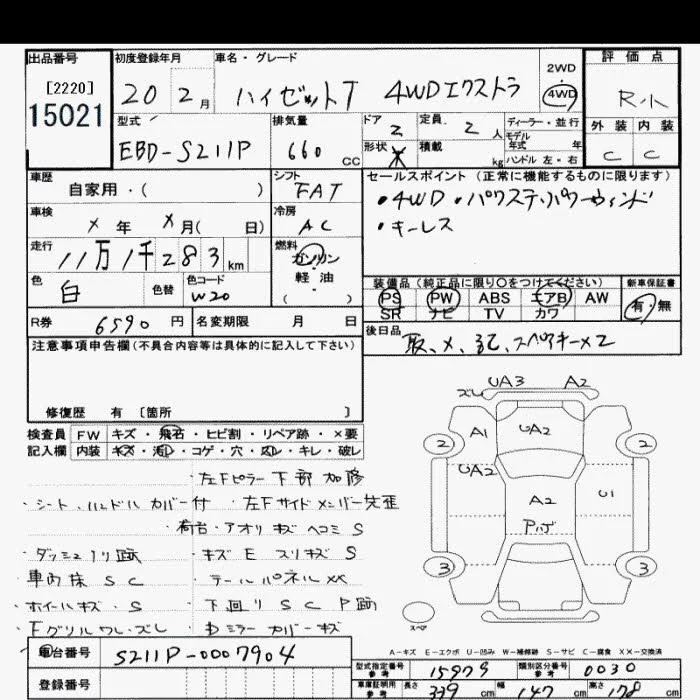 出品番号 初度登録年月 車名・グレード 2WD・4WD 評価点
[2220]
15021
20 2月 ハイゼットT 4WDエクストラ R小
型式 排気量 ドア 定員 ディーラー・並行 外装 内装
EBD-S211P 660 CC 2 2人 モデル年式 年 C C
形状 積載 kg ハンドル 左・右
車歴 シフト セールスポイント(正常に機能するものに限ります)
自家用・( ) FAT ・4WD ・パワステ・パワーウィンド
車検 冷房 ・キーレス
×年 ×月( 日) AC
走行 燃料
11万1千283km ガソリン
色 色替 色コード 軽油
白 W20 ( )
装備品(純正品に限り○をつけてください) 新車保証書
PS PW ABS エアB AW 有・無
SR ナビ TV カワ
R券 6590円 名変期限 月 日 後日品
取、メ、記、スペアキー×2
注意事項申告欄(不具合内容等は具体的に記入して下さい)
修復歴 有 [箇所 ]
検査員 FW キズ・飛石・ヒビ割・リペア跡・×要
記入欄 内装 キズ・汚レ・コゲ・穴・凶レ・キレ・破レ
・左Fピラー下部加修
・シート、ハンドルカバー付 ・左Fサイドメンバー先歪
・荷台・アオリキズヘコミS
・ダッシュノリ跡 ・キズEスリキズS
・車内床SC ・テールパネルXX
・ホイールキズ・S ・下回りSCP跡
・FグリルワレズレU ・Dミラーカバーキズ
ズレ UA3 A2
A1 UA2 2 2
UA2 A2 U1
Pハゲ
3 3
スペア
A-キズ E-エクボ U-凹み W-補修跡 S-サビ C-腐食 XX-交換済
車台番号 S211P-0007904
登録番号
型式指定番号 参考 15979 類別区分番号 参考 0030
車庫証明用 参考 長さ 339cm 幅 147cm 高さ 178cm